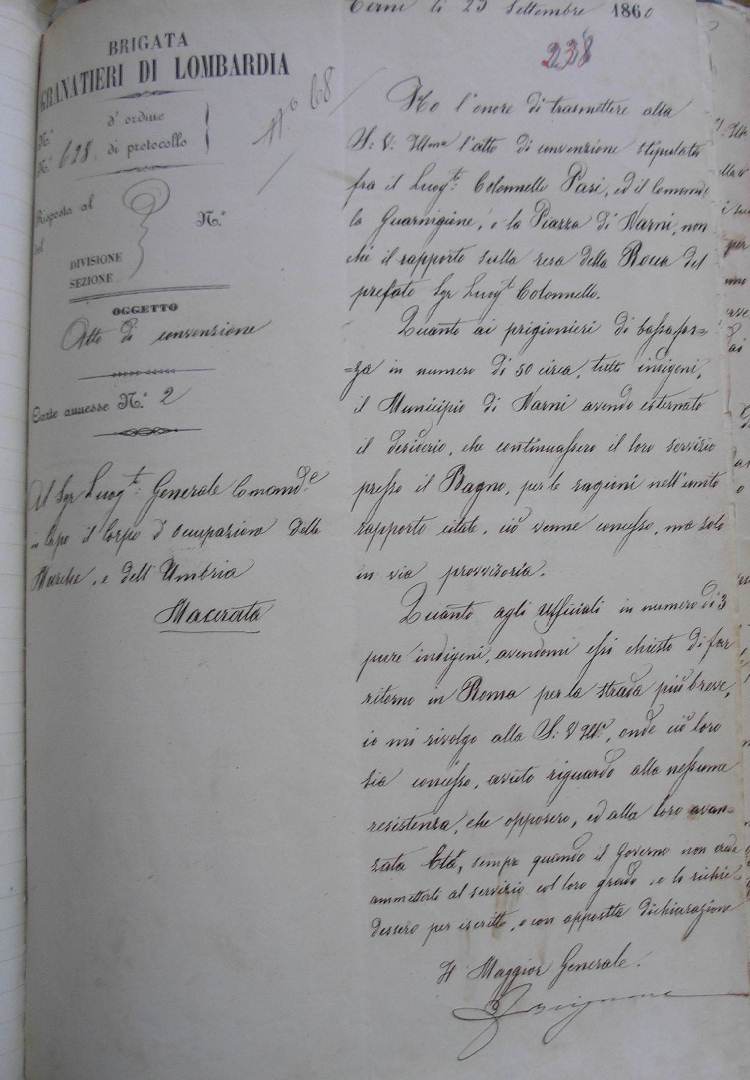 Terni li 23 Settembre 1860
238
BRIGATA
GRANATIERI DI LOMBARDIA
N.° d'ordine
N.° 628 di protocollo
N° 68
Risposta al N.°
del
DIVISIONE
SEZIONE
OGGETTO
Atto di convenzione
Carte annesse N.° 2
Al Sgr Luogt. Generale Comande
in Capo il Corpo d'occupazione delle
Marche, e dell'Umbria
Macerata
Ho l'onore di trasmettere alla
S: V: Illma l'atto di convenzione stipulato
fra il Luogt: Colonnello Pasi, ed il Comande
la Guarnigione, e la Piazza di Narni, non
chè il rapporto sulla resa della Rocca del
prefato Sgr Luogt Colonnello.
Quanto ai prigionieri di bassa for=
=za in numero di 50 circa, tutti indigeni,
il Municipio di Narni avendo esternato
il desiderio, che continuassero il loro servizio
presso il Bagno, per le ragioni nell'unito
rapporto citate, ciò venne concesso, ma solo
in via provvisoria.
Quanto agli Ufficiali in numero di 3
pure indigeni, avendomi essi chiesto di far
ritorno in Roma per la strada più breve,
io mi rivolgo alla S: V Illa, onde ciò loro
sia concesso, avuto riguardo alla nessuna
resistenza, che opposero, ed alla loro avan=
zata Età, sempre quando il Governo non creda
ammetterli al servizio col loro grado, e lo richie
dessero per iscritto, o con apposita dichiarazione
Il Maggior Generale.
Brignone